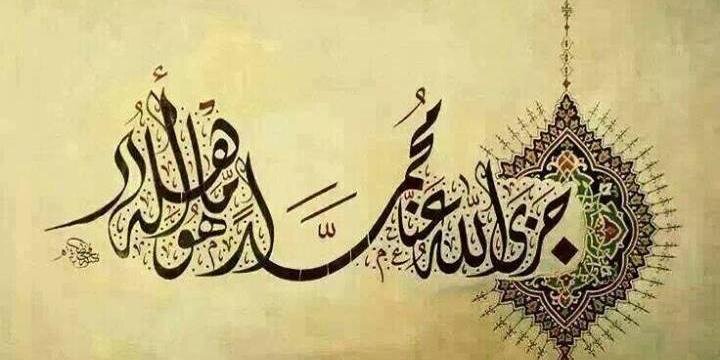 جَزَى اللّٰه عَنَّا مُحَمَّدًا مَّا هُوَ أَهْلُه